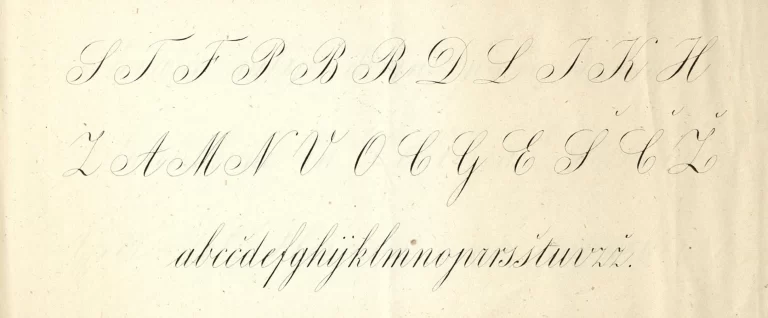 S T F P B R D L I K H
Z A M N V O C G E Š Č Ž
abcčdefghijklmnoprrsštuvzž.